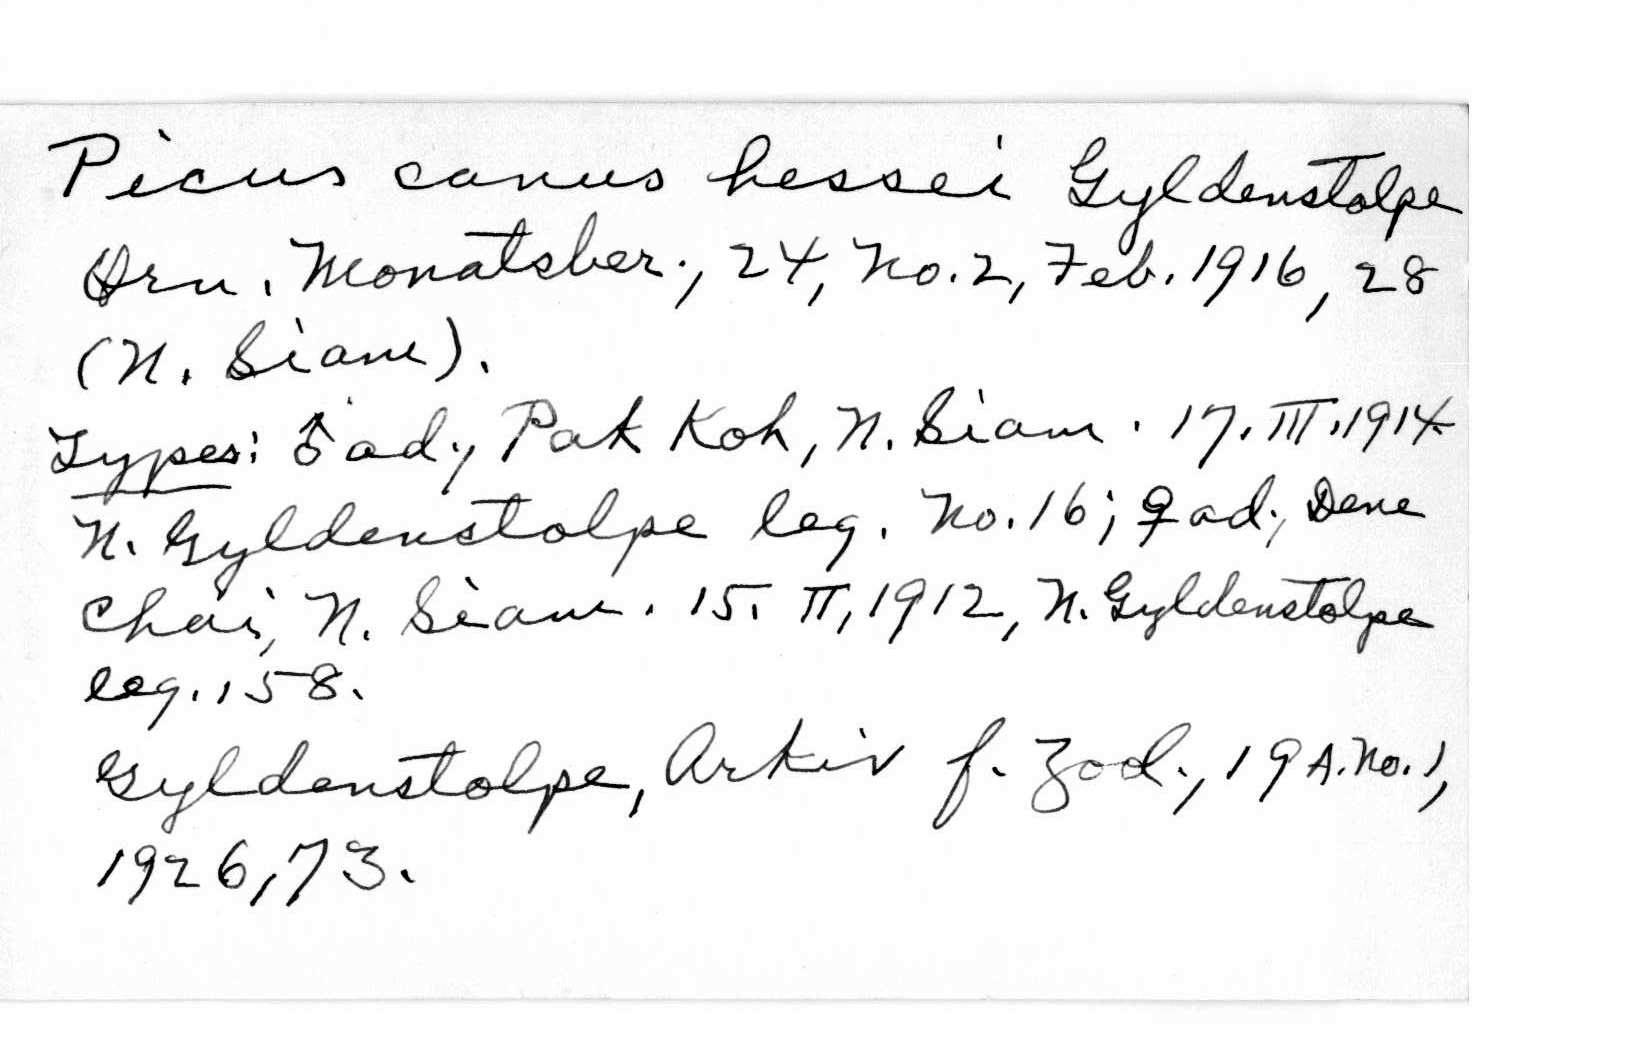 Picus canus hessei Gyldenstolpe
Orn. Monatsber., 24, No.2, Feb. 1916, 28
(N. Siam).
Types: ♂ ad., Pak Koh, N. Siam. 17.III.1914
N. Gyldenstolpe leg. No.16; ♀ ad., Dene
Chai, N. Siam. 15. II, 1912, N. Gyldenstolpe
leg. 158.
Gyldenstolpe, Arkiv f. Zool., 19A. No.1,
1926, 73.